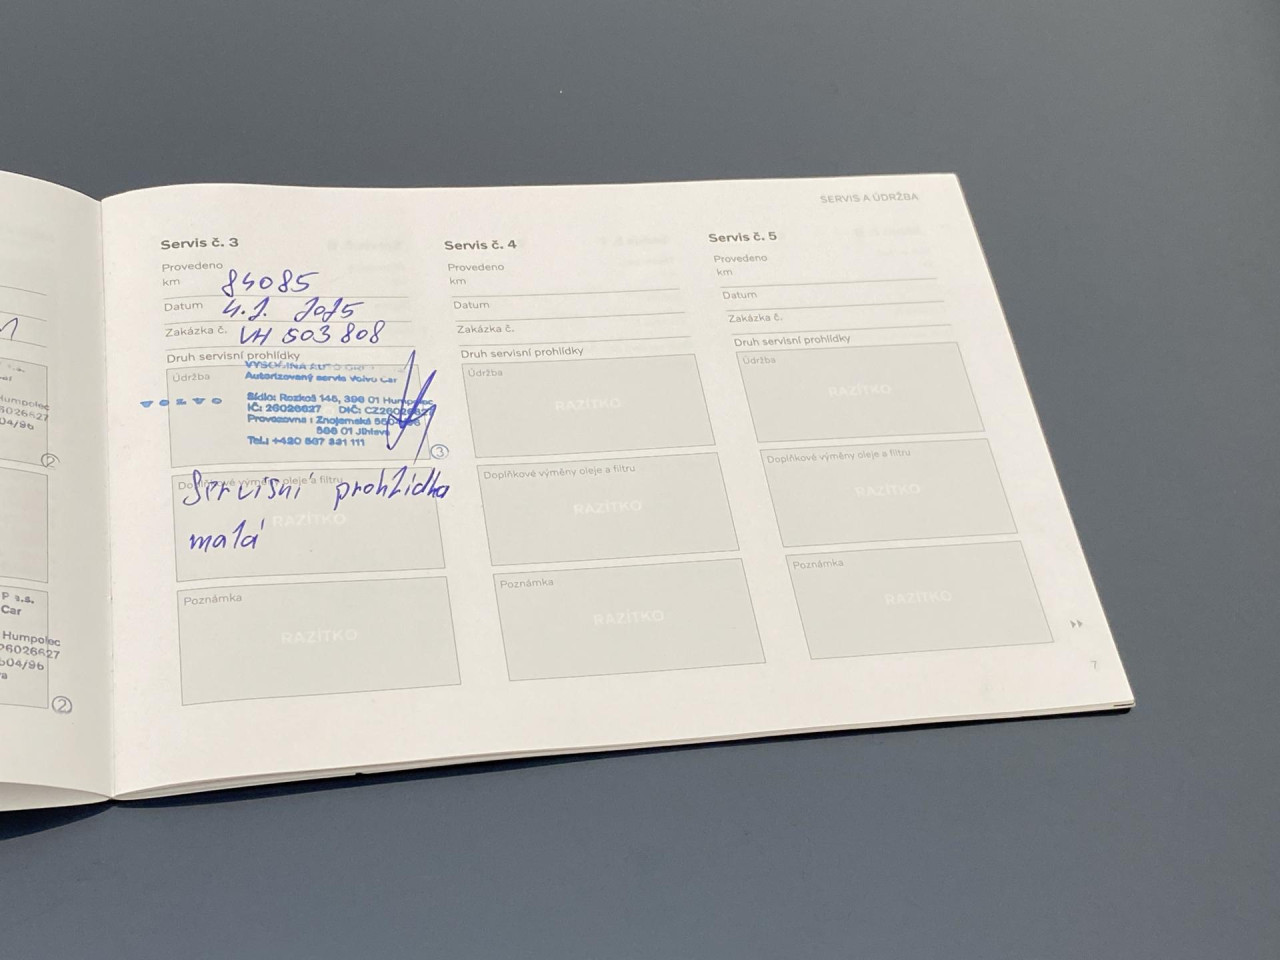 SERVIS A ÚDRŽBA
Servis č. 3
Provedeno
km 84085
Datum 4.2. 2025
Zakázka č. VH 503 808
Druh servisní prohlídky
Údržba
VYSOČINA AUTO
Autorizovaný servis Volvo Car
VOLVO
Sídlo: Rozkoš 145, 396 01 Humpolec
IČ: 26026627 DIČ: CZ26026627
Provozovna: Znojemská
586 01 Jihlava
Tel.: +420 567 331 111
3
Doplňkové výměny oleje a filtru
Servisní prohlídka
malá
RAZÍTKO
Poznámka
RAZÍTKO
Servis č. 4
Provedeno
km
Datum
Zakázka č.
Druh servisní prohlídky
Údržba
RAZÍTKO
Doplňkové výměny oleje a filtru
RAZÍTKO
Poznámka
RAZÍTKO
Servis č. 5
Provedeno
km
Datum
Zakázka č.
Druh servisní prohlídky
Údržba
RAZÍTKO
Doplňkové výměny oleje a filtru
RAZÍTKO
Poznámka
RAZÍTKO
7
Humpolec
26026627
04/96
2
P a.s.
Car
Humpolec
26026627
504/96
2